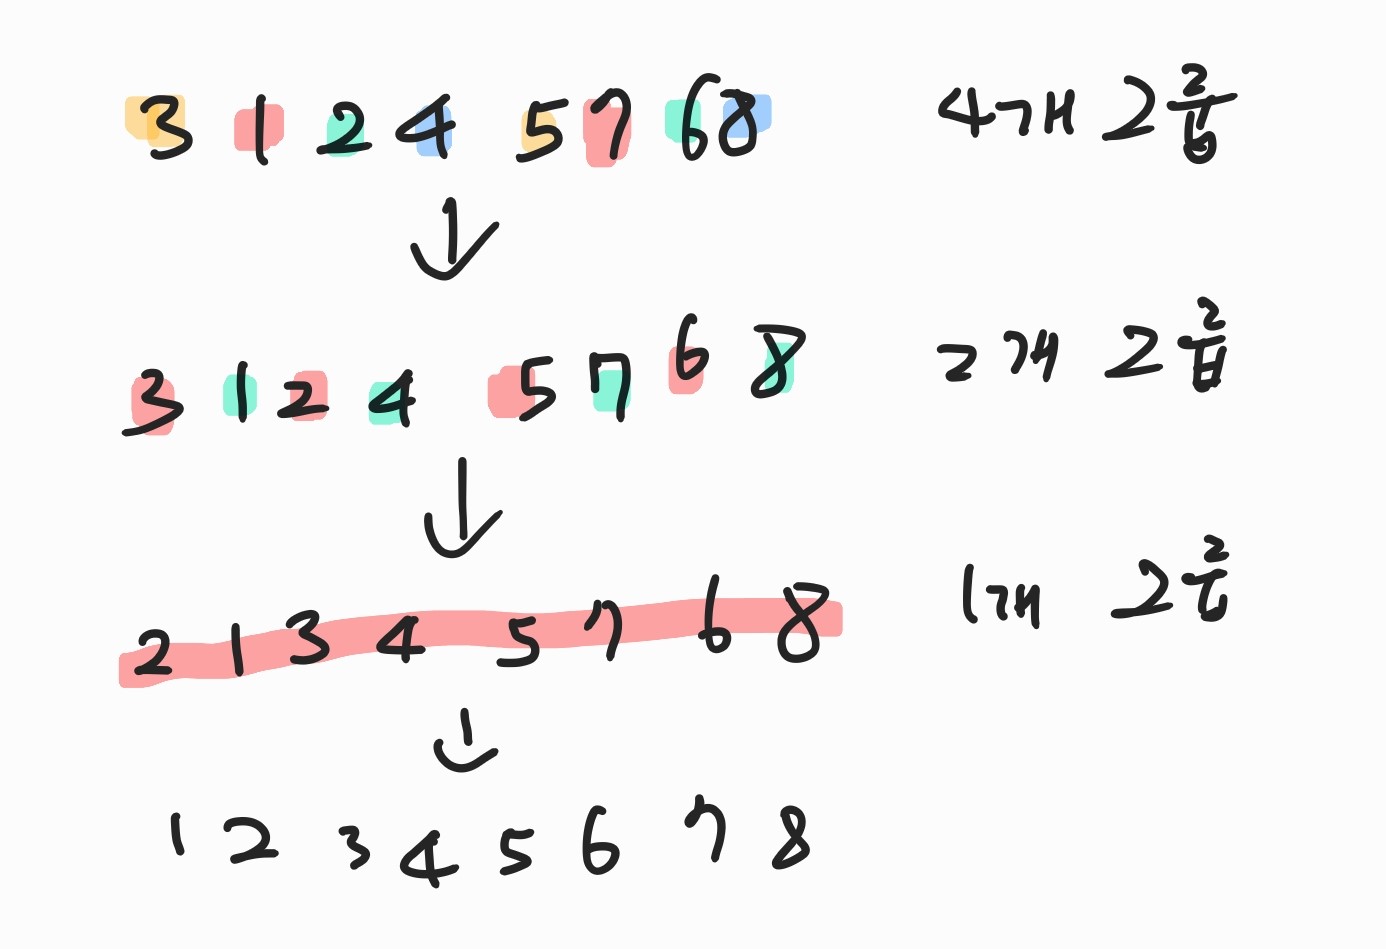 3 1 2 4 5 7 6 8 4개 그룹
3 1 2 4 5 7 6 8 2개 그룹
2 1 3 4 5 7 6 8 1개 그룹
1 2 3 4 5 6 7 8